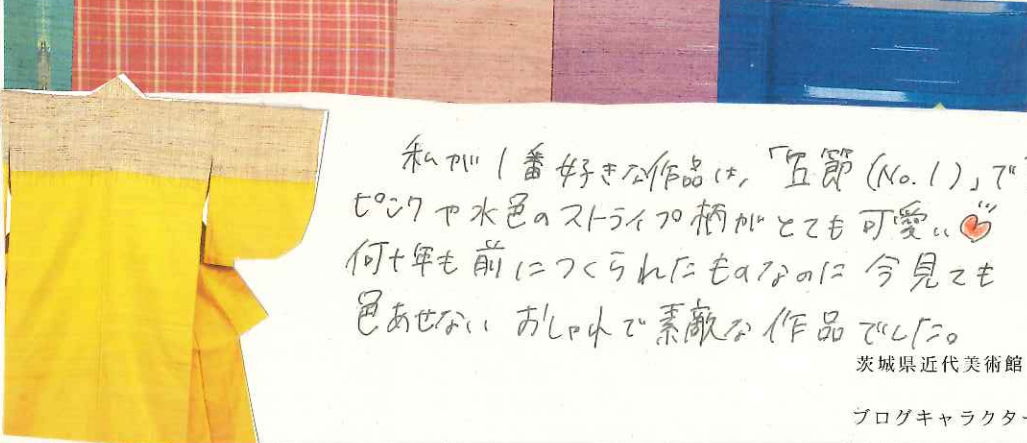 私が1番好きな作品は,「五節(No.1)」で
ピンクや水色のストライプ柄がとても可愛い
何十年も前につくられたものなのに今見ても
色あせないおしゃれで素敵な作品でした。
茨城県近代美術館
ブログキャラクター